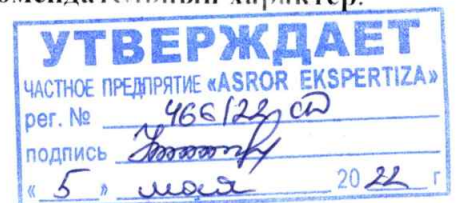 характер.
УТВЕРЖДАЕТ
ЧАСТНОЕ ПРЕДПРЯТИЕ «ASROR EKSPERTIZA»
рег. № 466/22
подпись
« 5 » мая 20 22 г